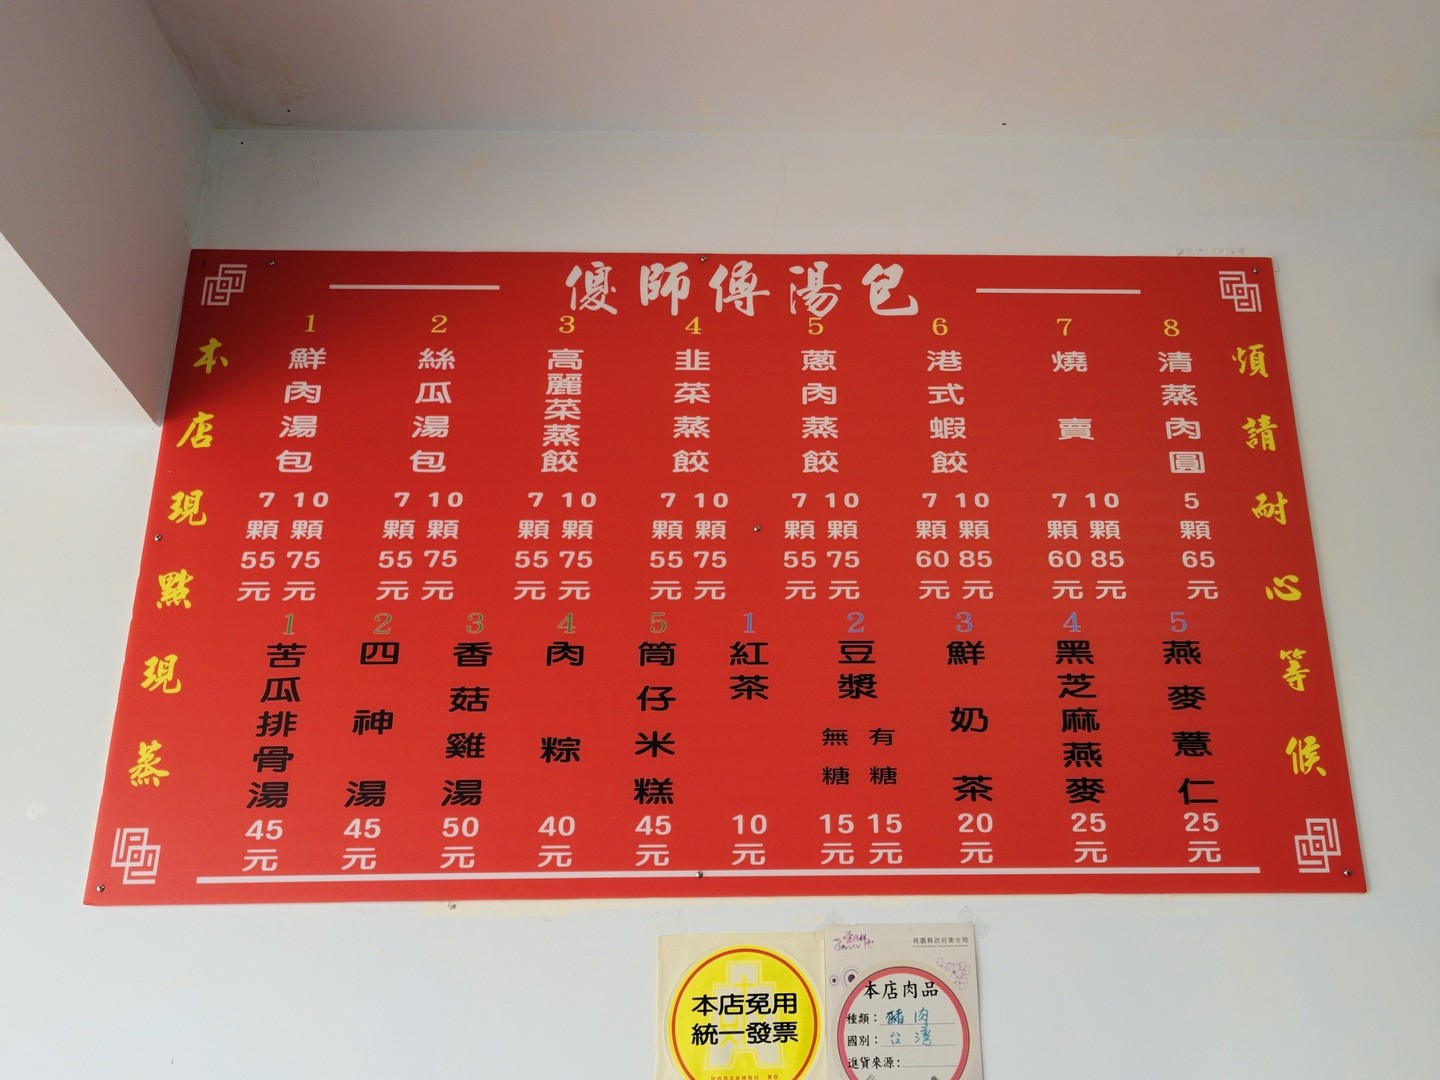 傻師傅湯包
本店現點現蒸
煩請耐心等候
1 鮮肉湯包 7顆55元 10顆75元
2 絲瓜湯包 7顆55元 10顆75元
3 高麗菜蒸餃 7顆55元 10顆75元
4 韭菜蒸餃 7顆55元 10顆75元
5 蔥肉蒸餃 7顆55元 10顆75元
6 港式蝦餃 7顆60元 10顆85元
7 燒賣 7顆60元 10顆85元
8 清蒸肉圓 5顆65元
1 苦瓜排骨湯 45元
2 四神湯 45元
3 香菇雞湯 50元
4 肉粽 40元
5 筒仔米糕 45元
1 紅茶 10元
2 豆漿 無糖15元 有糖15元
3 鮮奶茶 20元
4 黑芝麻燕麥 25元
5 燕麥薏仁 25元
本店免用
統一發票
桃園縣政府衛生局
本店肉品
種類：豬肉
國別：台灣
進貨來源：